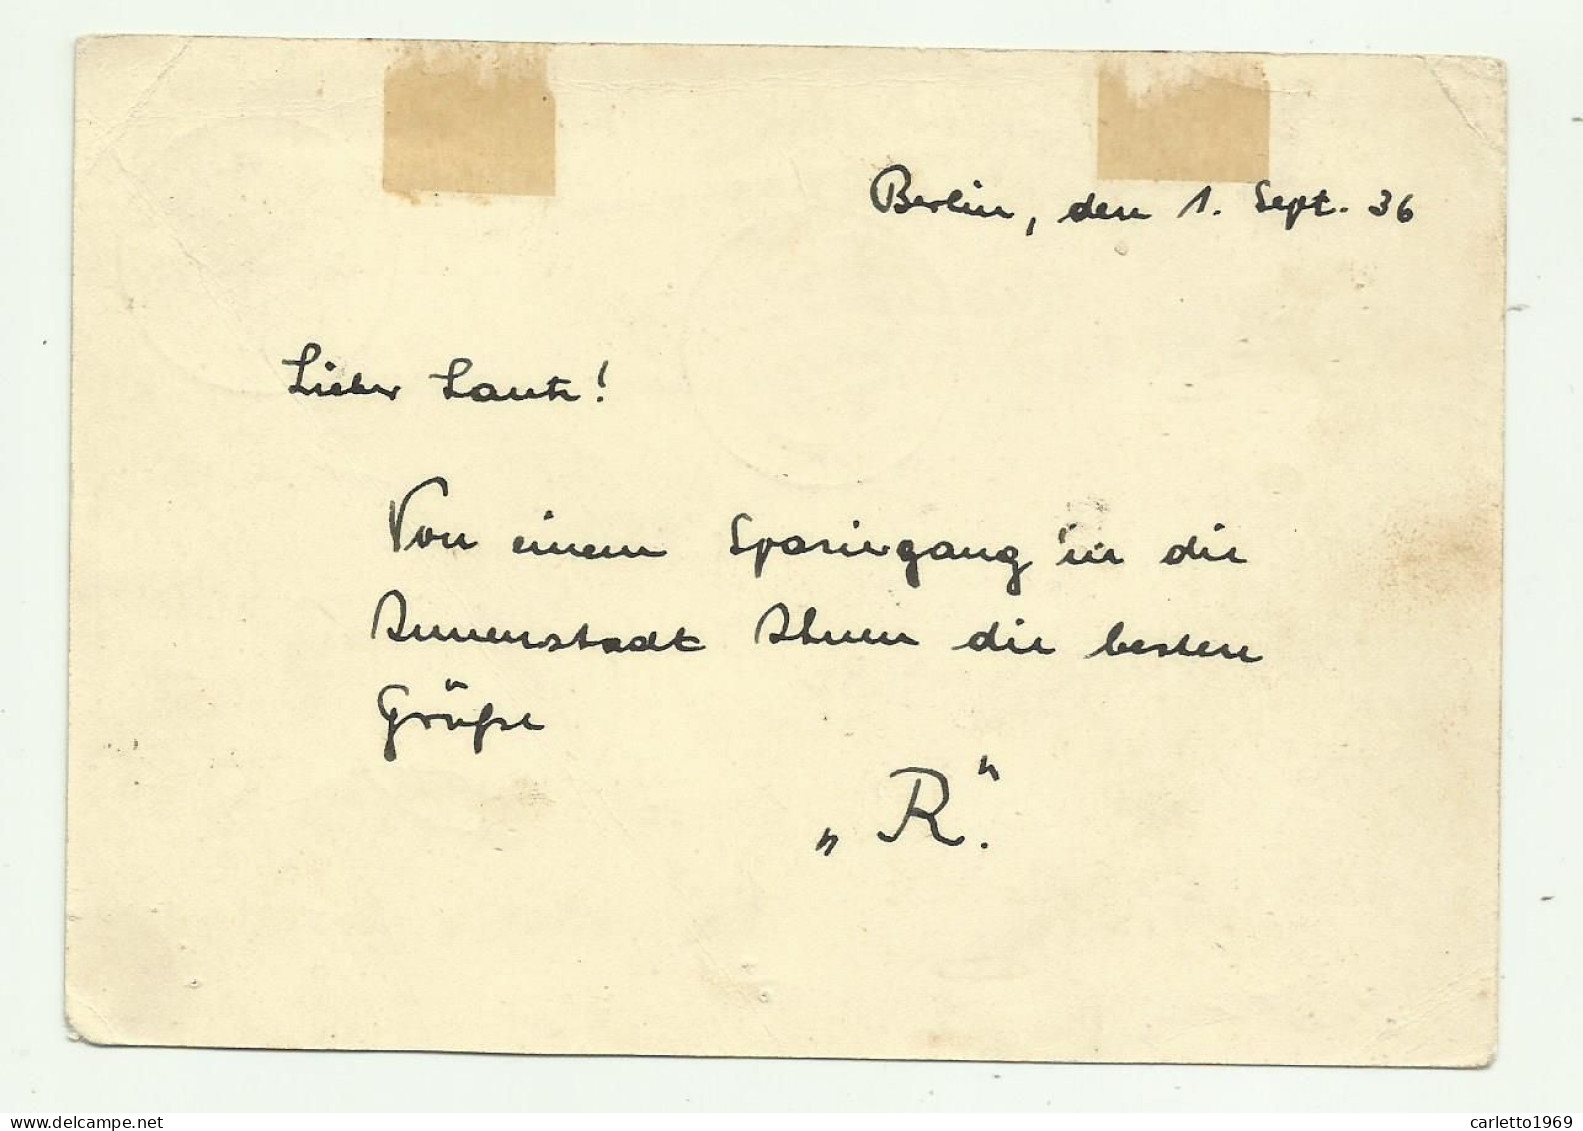 Berlin, den 1. Sept. 36
Lieber Lautz!
Von einem Spaziergang in die
Innenstadt Ihnen die besten
Grüße
„R."
www.delcampe.net
carletto1969